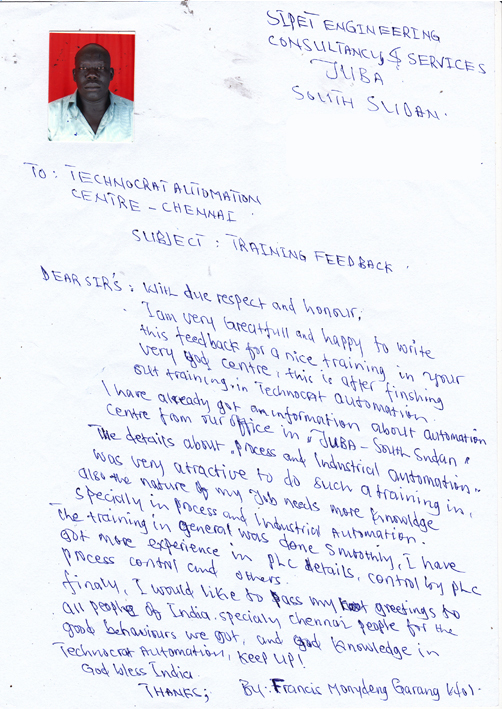 SIPET ENGINEERING
CONSULTANCY & SERVICES
JUBA
SOUTH SUDAN.
TO: TECHNOCRAT AUTOMATION
CENTRE - CHENNAI.
SUBJECT: TRAINING FEEDBACK.
DEAR SIR'S: With due respect and honour,
I am very greatfull and happy to write
this feedback for a nice training in your
very god centre, this is after finshing
out training, in Technocrat automation.
I have already got an information about automation
centre from our office in "JUBA - South Sudan"
The details about "process and Industrial automation"
was very atractive to do such a training in,
also the nature of my Job needs more knowldge
specially in process and Industrial Automation.
The training in general was done smoothly, I have
got more experience in PLC details, control by PLC
process control and others.
finaly, I would like to pass my greetings to
all people of India. specialy chennai people for the
good behaviours we got, and god knowledge in
Technocrat Automation, keep up!
God bless India
THANKS; By: Francis Monydeng Garang